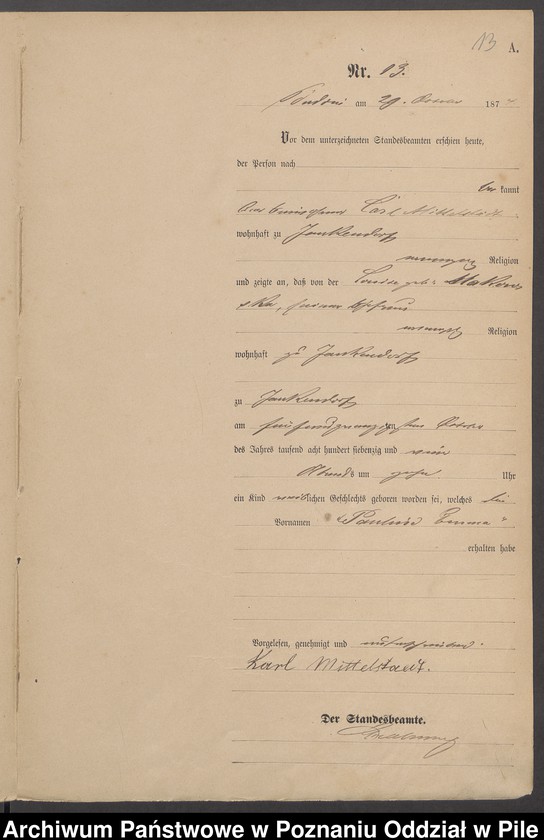 13 A.
Nr. 13.
am 29. 187
Vor dem unterzeichneten Standesbeamten erschien heute,
der Person nach
be kannt
Carl Mittelstädt
wohnhaft zu Jankendorf
evangel Religion
und zeigte an, daß von der Louise geb.
ska, seiner Ehefrau
evangel Religion
wohnhaft zu Jankendorf
zu Jankendorf
am fünfundzwanzig ten
des Jahres tausend acht hundert siebenzig und
Abends um zehn Uhr
ein Kind weiblichen Geschlechts geboren worden sei, welches die
Vornamen "Pauline Emma"
erhalten habe
Vorgelesen, genehmigt und unterschrieben.
Karl Mittelstaedt.
Der Standesbeamte.
Archiwum Państwowe w Poznaniu Oddział w Pile